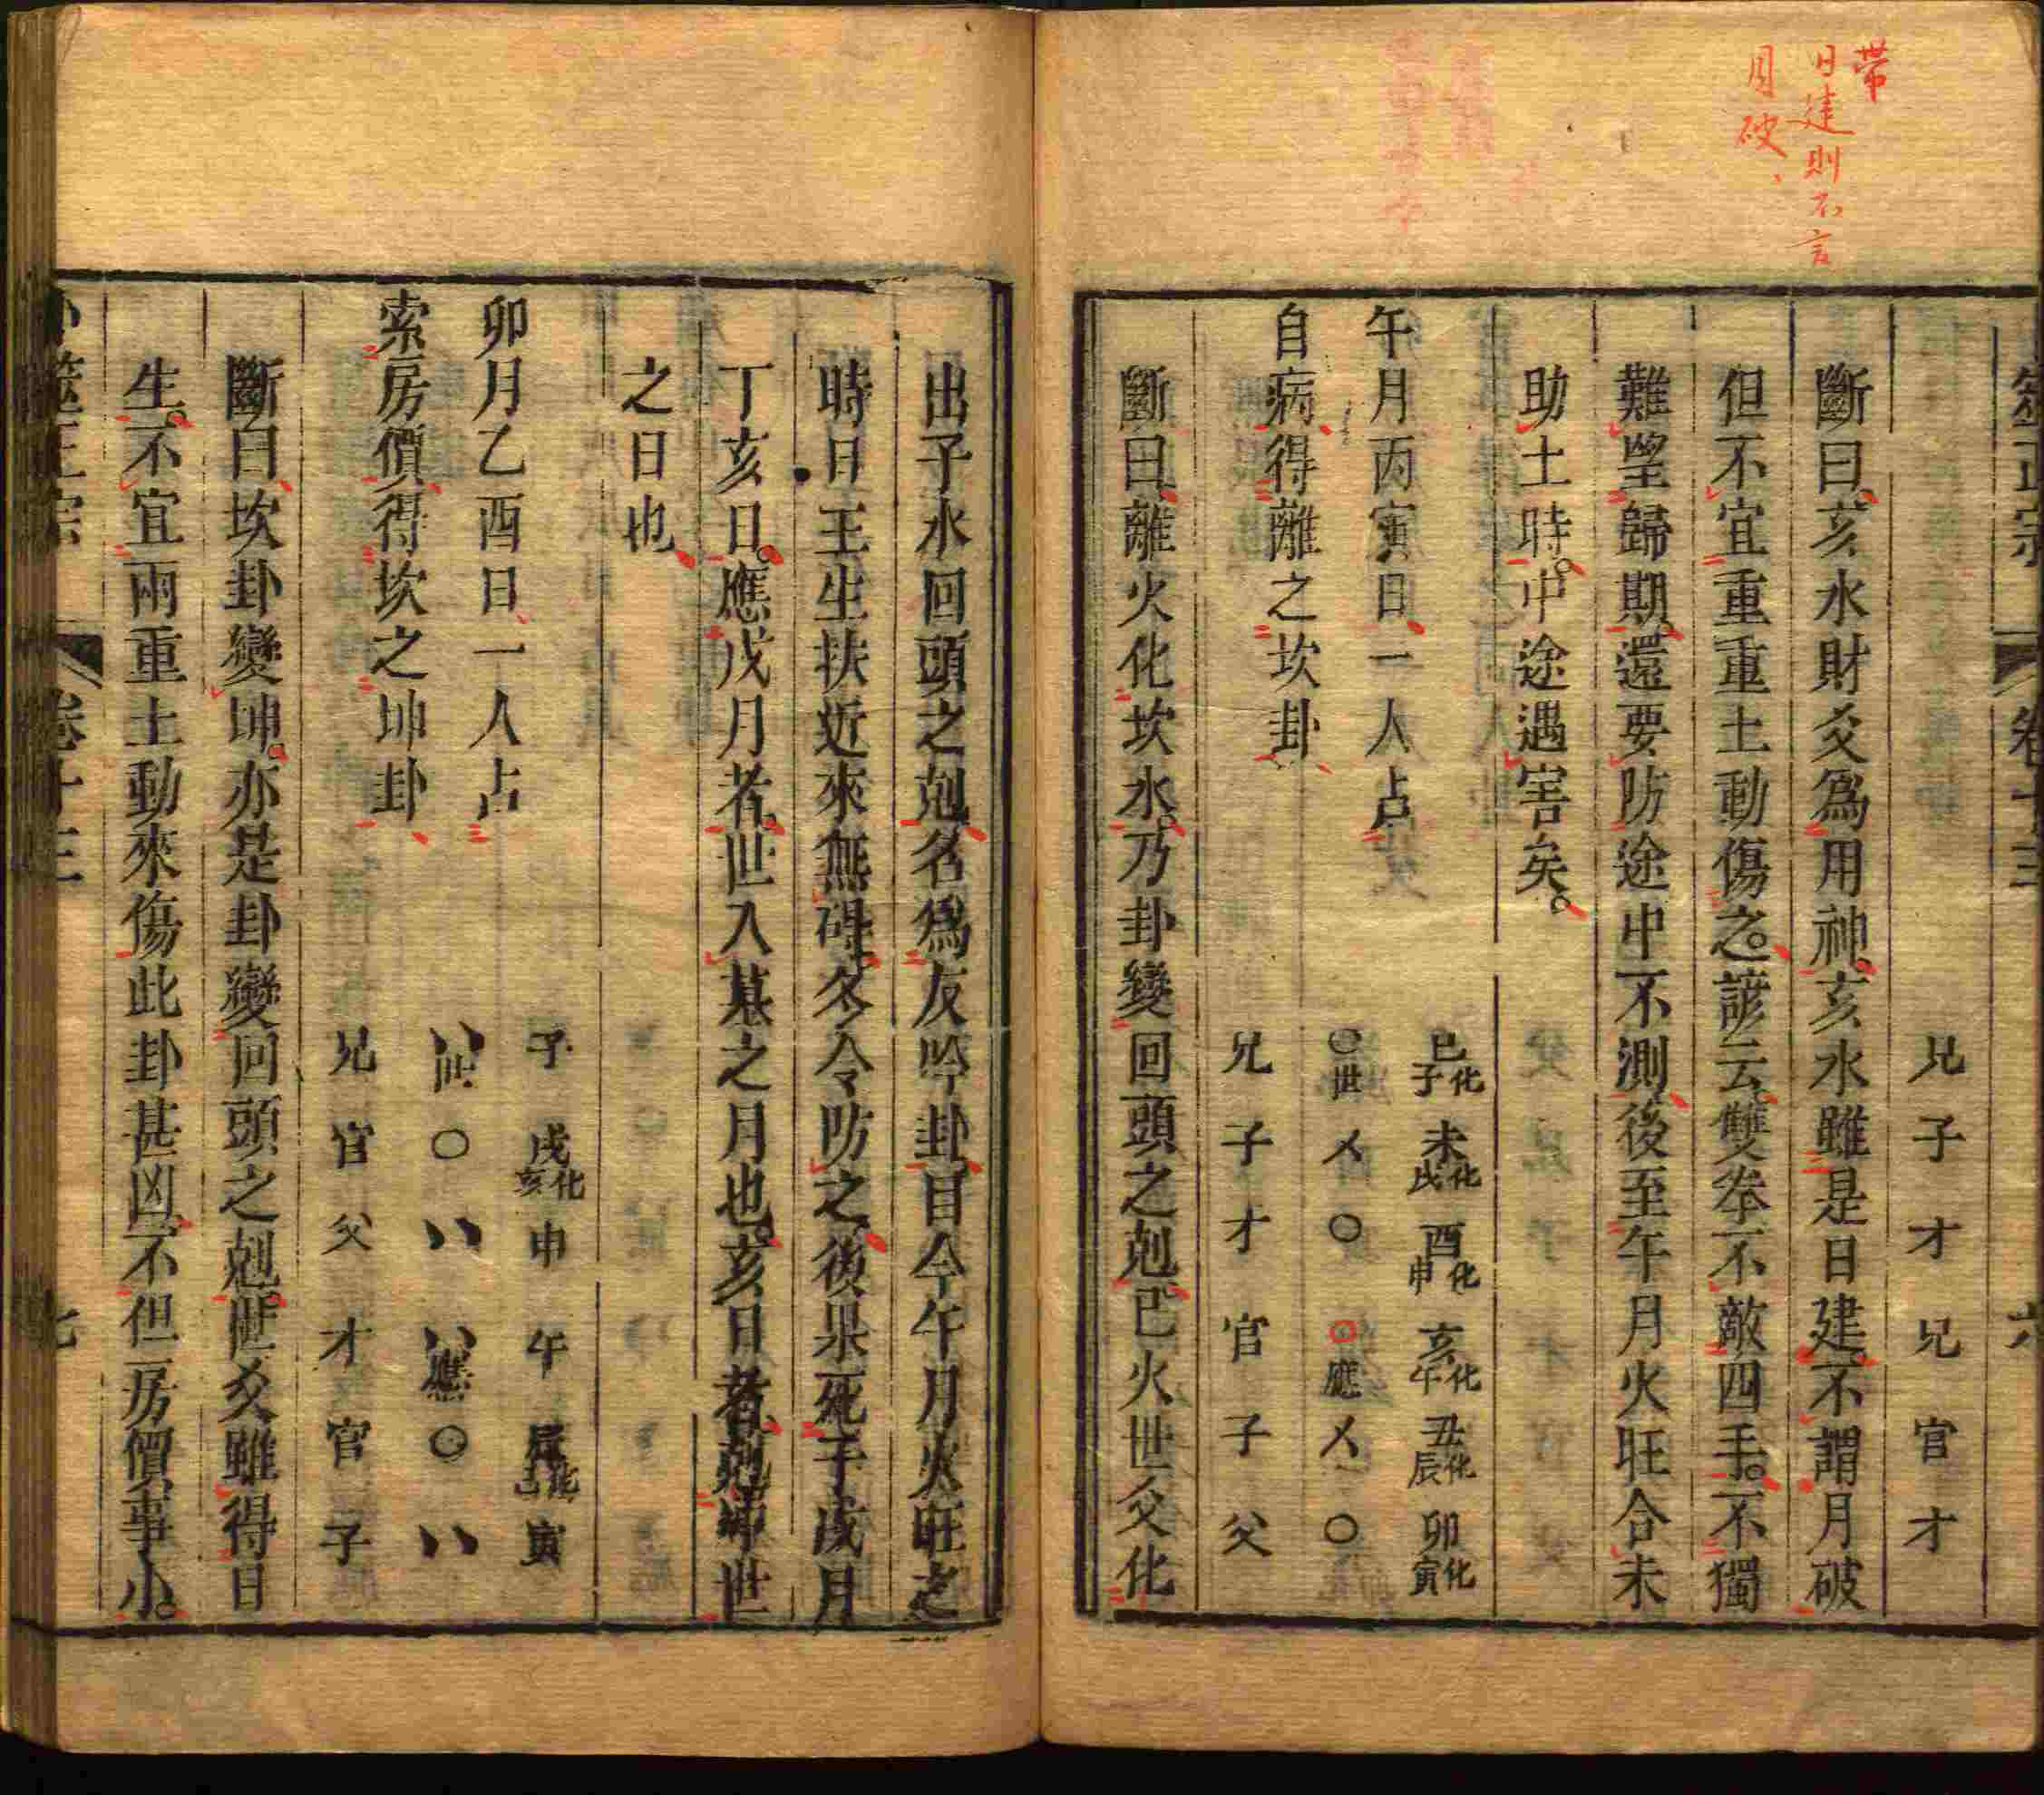 帶
日建則不言
月破
卷十三　六
兄　子　才　兄　官　才
斷曰亥水財爻爲用神亥水雖是日建不謂月破
但不宜重重土動傷之諺云雙拳不敵四手不獨
難望歸期還要防途中不測後至午月火旺合未
助土時中途遇害矣
午月丙寅日一人占　巳化子　未化戌　酉化申　亥化午　丑化辰　卯化寅
自病得離之坎卦　〇世　乂　〇　〇應　乂　〇
兄　子　才　官　子　父
斷曰離火化坎水乃卦變回頭之剋巳火世爻化
出子水回頭之剋名爲反吟卦目今午月火旺之
時日王生扶近來無碍冬令防之後果死于戌月
丁亥日應戌月者世入墓之月也亥日者剋世
之日也
卯月乙酉日一人占　子　戌化亥　申　午　辰化　寅
索房價得坎之坤卦　〃世　〇　〃　〃應　〇　〃
兄　官　父　才　官　子
斷曰坎卦變坤亦是卦變回頭之剋世爻雖得日
生不宜兩重土動來傷此卦甚凶不但房價事小
卜筮正宗　卷十三　七